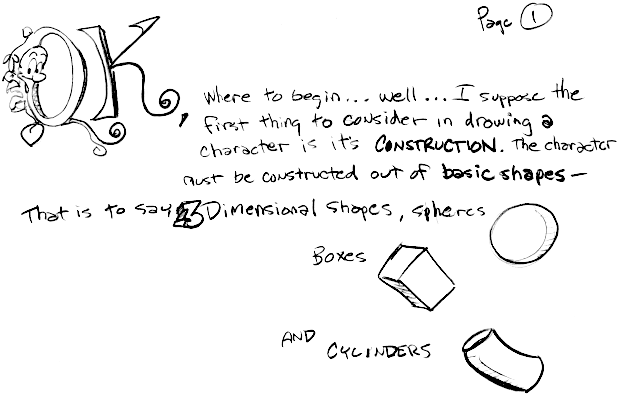 Page 1
OK,
Where to begin... well... I suppose the
first thing to consider in drawing a
character is it's CONSTRUCTION. The character
must be constructed out of basic shapes—
That is to say 3 Dimensional shapes, spheres
Boxes
AND CYLINDERS